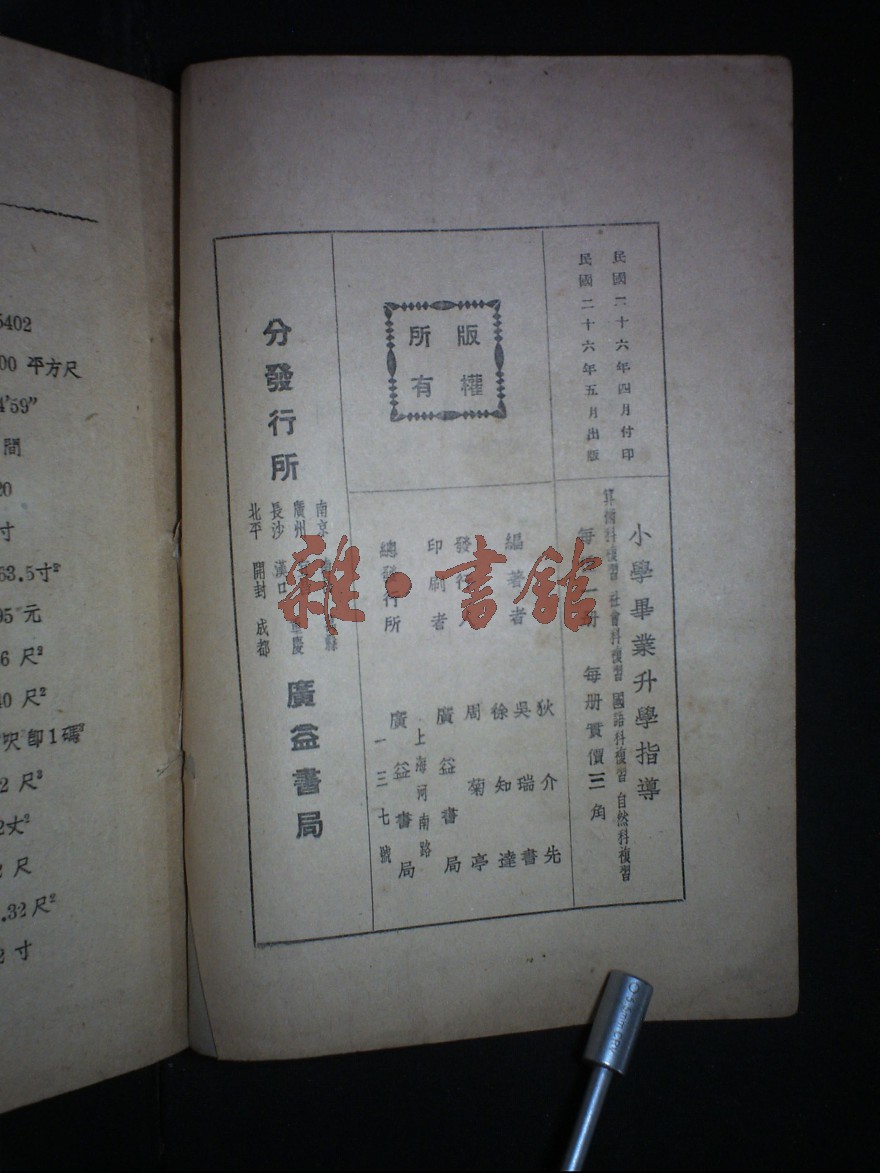 民國二十六年四月付印
民國二十六年五月出版
版權
所有
小學畢業升學指導
算術科複習 社會科複習 國語科複習 自然科複習
每 冊 每冊實價三角
編著者
狄介先
吳瑞書
徐知達
發行
周菊亭
印刷者
廣益書局
總發行所
上海河南路
一三七號
廣益書局
分發行所
南京
廣州
長沙 漢口 重慶
北平 開封 成都
廣益書局
雜·書館
5402
00 平方尺
4'59"
間
20
寸
63.5寸²
95元
6 尺²
40 尺²
呎即1碼
2 尺³
2丈²
2 尺
.32尺²
2 寸